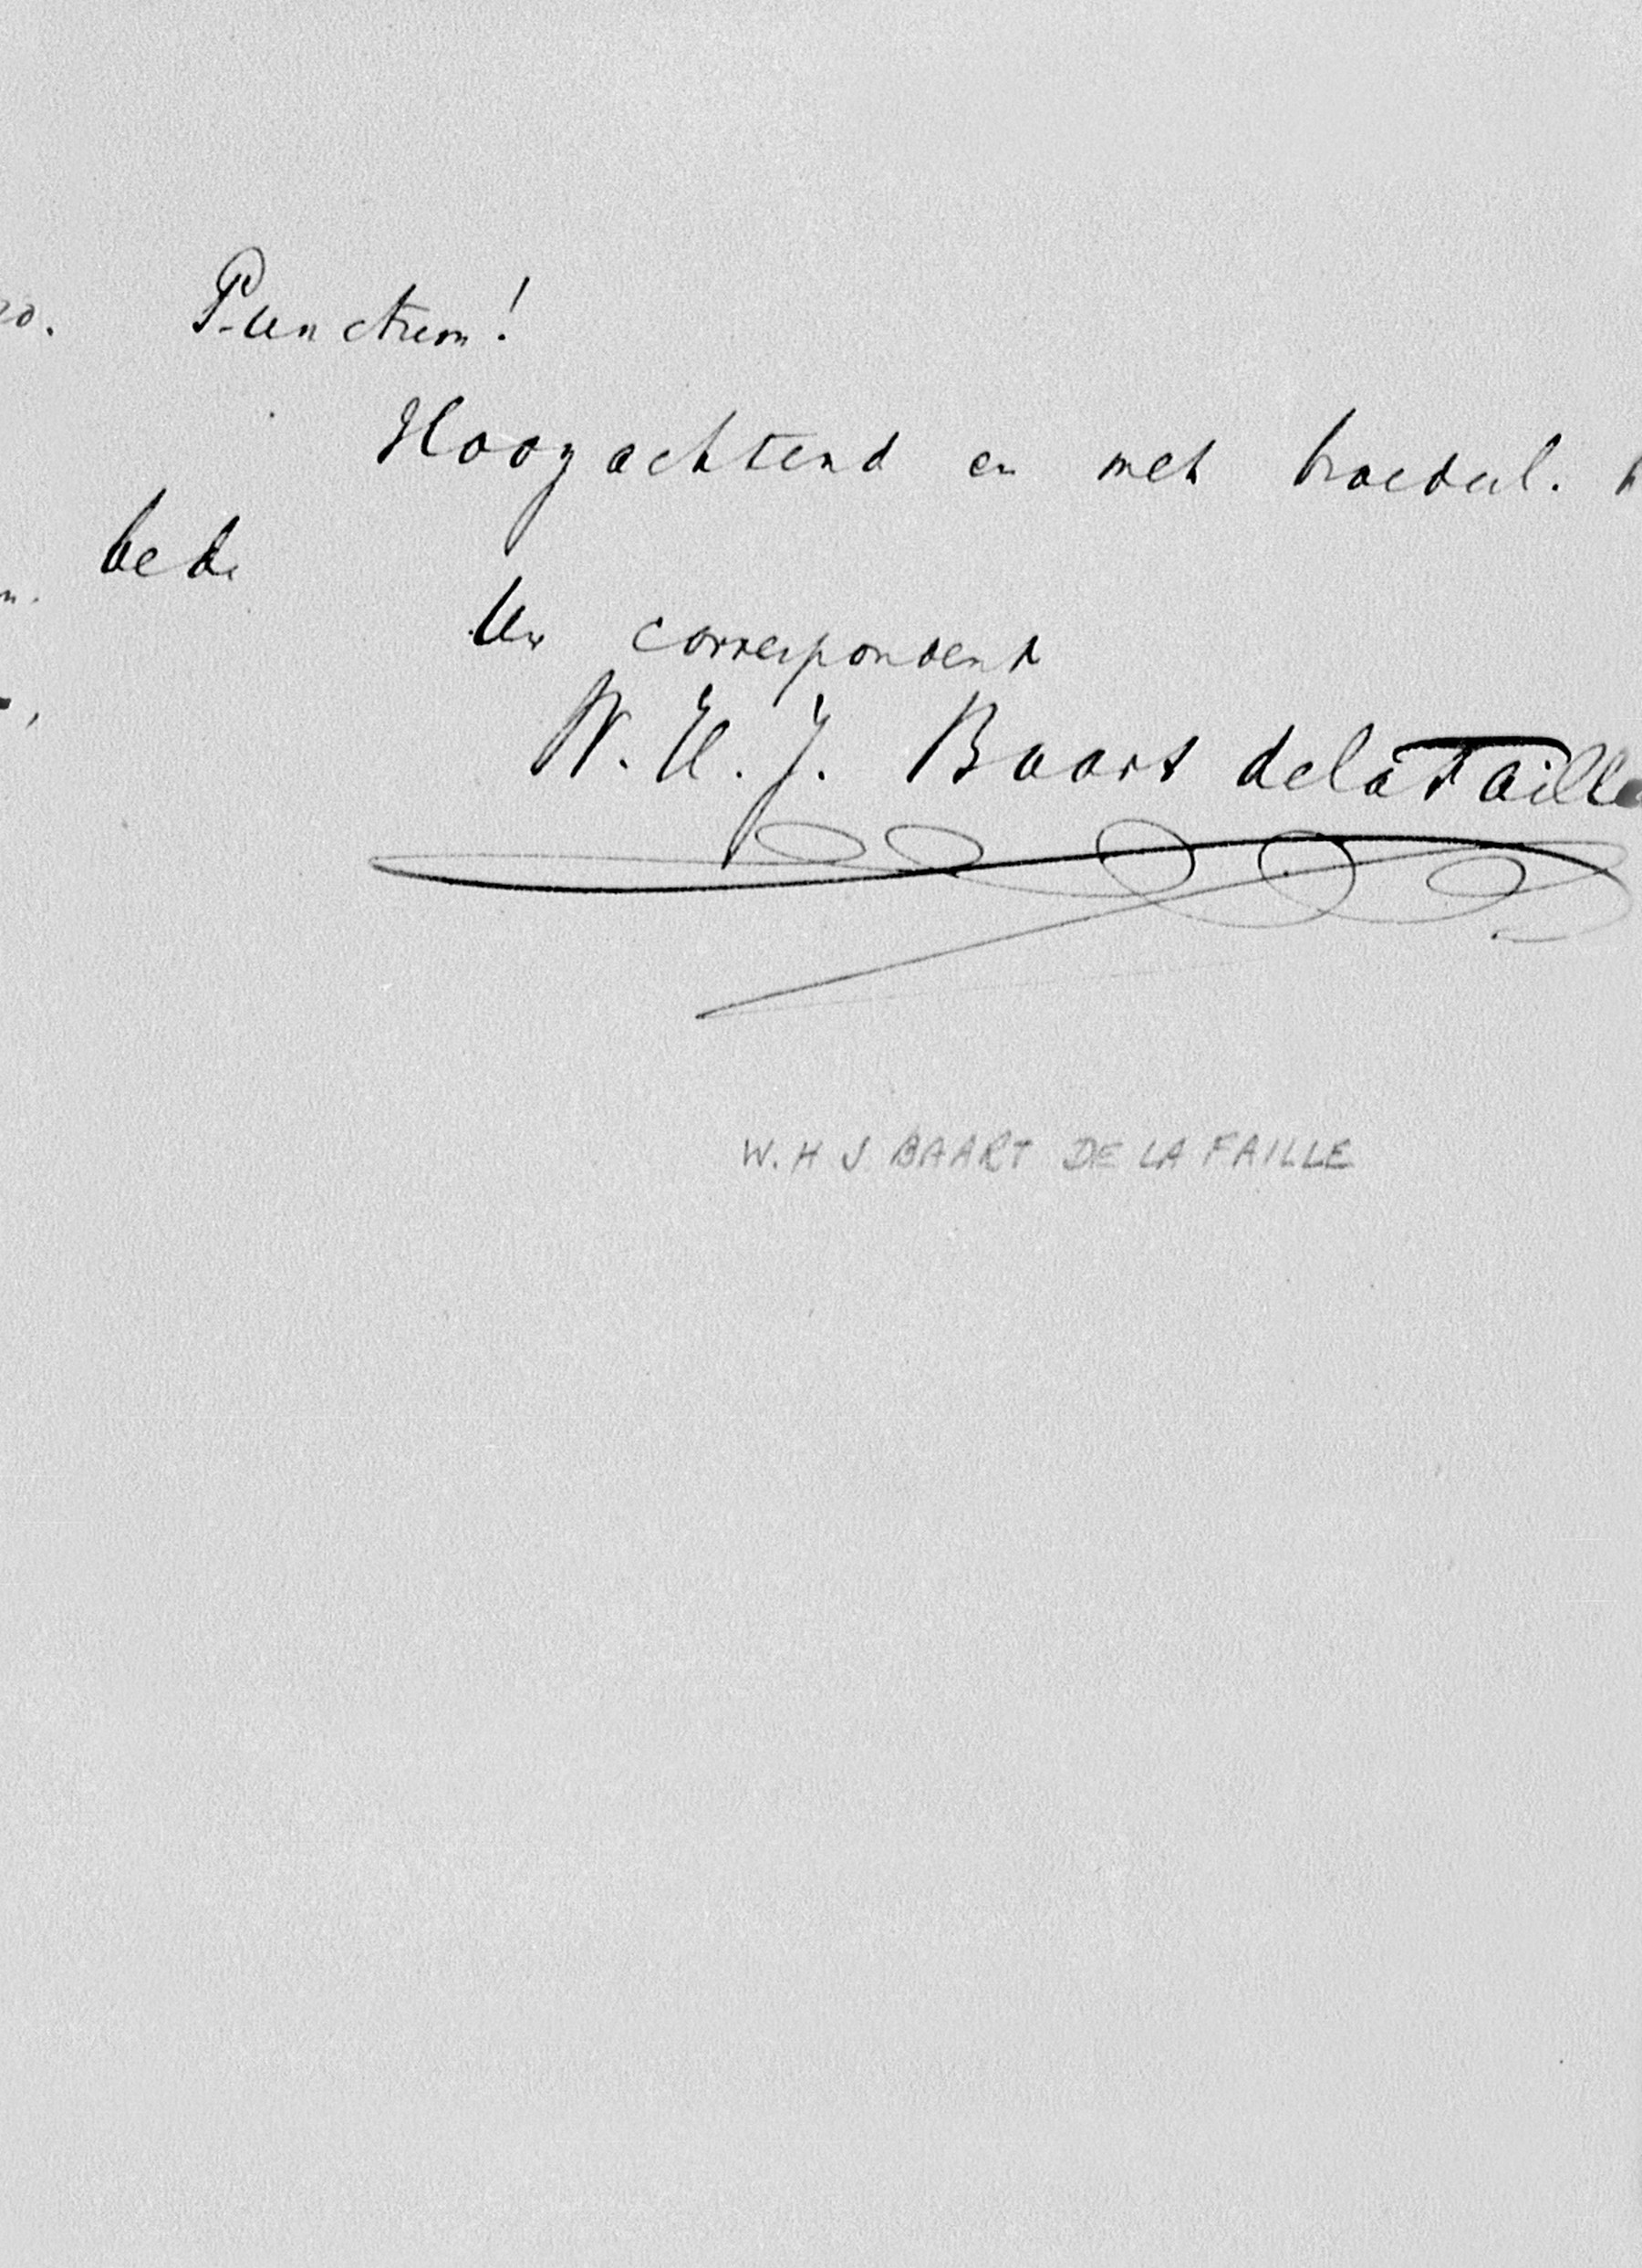 Punctum!
Hoogachtend en met broederl.
bede
Uw correspondent
W. H. J. Baart de la Faille
W. H J BAART DE LA FAILLE